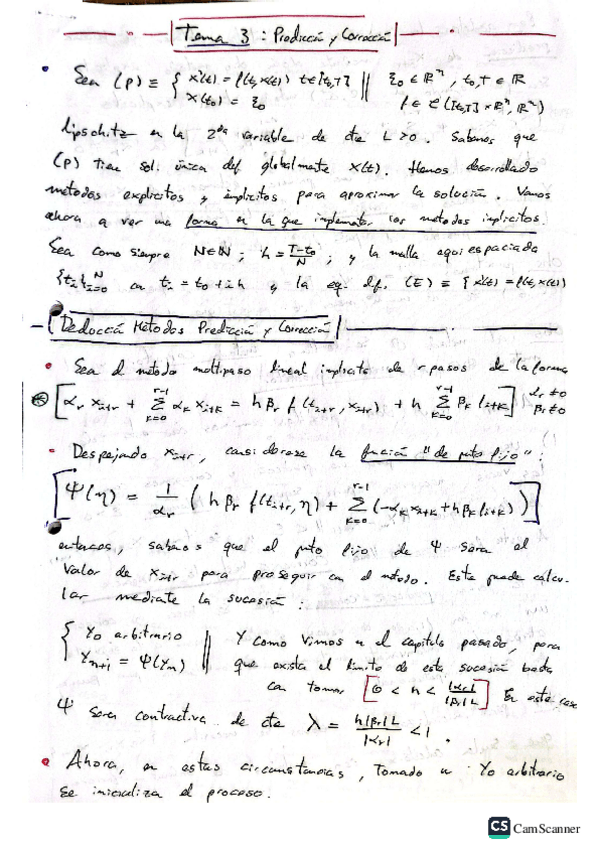 Tema 3: Predicción y Corrección
Sea (P) ≡ { x'(t) = f(t,x(t)) t∈[t₀,T] || ξ₀ ∈ ℝⁿ, t₀,T ∈ ℝ
x(t₀) = ξ₀ f ∈ C([t₀,T]×ℝⁿ, ℝⁿ)
lipschitz en la 2ª variable de cte L>0. Sabemos que
(P) tiene sol. única def globalmente x(t). Hemos desarrollado
métodos explícitos y implícitos para aproximar la solución. Vamos
ahora a ver una forma en la que implementar los métodos implícitos.
Sea como siempre N∈ℕ; h = (T-t₀)/N; y la malla equiespaciada
{tᵢ}ᵢ₌₀ᴺ con tᵢ = t₀ + ih y la eq. dif. (E) ≡ {x'(t) = f(t,x(t))
Deducción Métodos Predicción y Corrección
• Sea el método multipaso lineal implícito de r pasos de la forma
[αᵣ xᵢ₊ᵣ + Σₖ₌₀ʳ⁻¹ αₖ xᵢ₊ₖ = h βᵣ f(tᵢ₊ᵣ, xᵢ₊ᵣ) + h Σₖ₌₀ʳ⁻¹ βₖ fᵢ₊ₖ] αᵣ≠0 βᵣ≠0
- Despejando xᵢ₊ᵣ, considérese la función "de pto fijo":
[Ψ(η) = 1/αᵣ ( h βᵣ f(tᵢ₊ᵣ, η) + Σₖ₌₀ʳ⁻¹ (-αₖ xᵢ₊ₖ + h βₖ fᵢ₊ₖ) )]
entonces, sabemos que el pto fijo de Ψ será el
valor de xᵢ₊ᵣ para proseguir con el método. Este puede calcu-
lar mediante la sucesión:
{ Y₀ arbitrario || Y como vimos en el capítulo pasado, para
Yₙ₊₁ = Ψ(Yₙ) que exista el límite de esta sucesión basta
con tomar [0 < h < |αᵣ|/(|βᵣ| L)] En este caso
Ψ será contractiva de cte λ = h|βᵣ|L/|αᵣ| < 1.
• Ahora, en estas circunstancias, Tomado un Y₀ arbitrario
se inicializa el proceso.
CS CamScanner